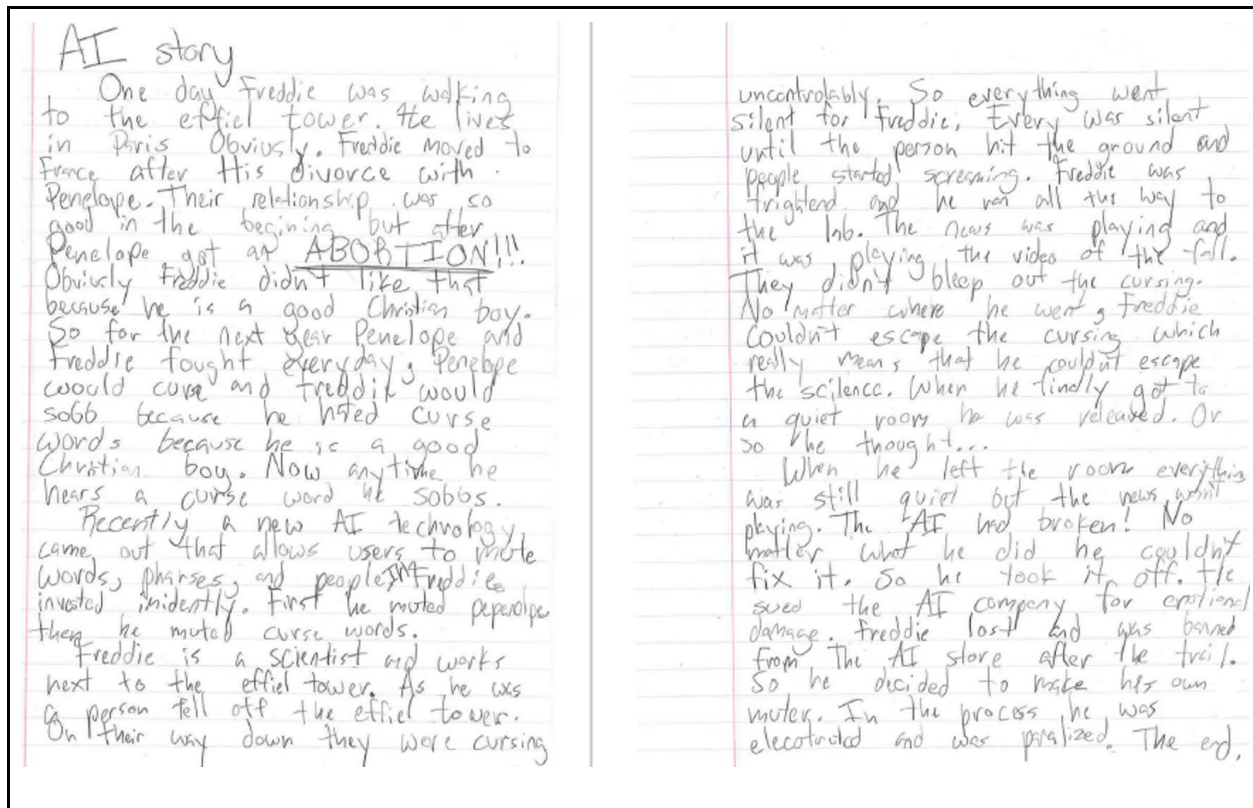 AI story
One day Freddie was walking
to the effiel tower. He lives
in Paris Obviusly. Freddie moved to
France after His divorce with
Penelope. Their relationship was so
good in the begining but after
Penelope got an ABORTION!!!
Obviusly Freddie didn't like that
because he is a good Christian boy.
So for the next year Penelope and
Freddie fought everyday, Penelope
woould curse and freddie would
sobb because he hated curse
words because he is a good
Christian boy. Now anytime he
hears a curse word he sobbs.
Recently a new AI technology
came out that allows users to mute
words, pharses, and people. Freddie
invested imidently. First he muted pepenolpe
then he muted curse words.
Freddie is a scientist and works
next to the effiel tower. As he was
a person fell off the effiel tower.
On their way down they were cursing
uncontrolably. So everything went
silent for freddie. Every was silent
until the person hit the ground and
people started screaming. Freddie was
frightend and he ran all the way to
the lab. The news was playing and
it was playing the video of the fall.
They didn't bleep out the cursing.
No matter where he went, freddie
couldn't escape the cursing which
really means that he couldn't escape
the scilence. When he finally got to
a quiet room he was releaved. Or
so he thought...
When he left the room everything
was still quiet but the news wasn't
playing. The AI had broken! No
matter what he did he couldn't
fix it. So he took it off. He
sued the AI company for emotional
damage. Freddie lost and was banned
from The AI store after the trail.
So he decided to make his own
muter. In the process he was
elecotruted and was paralized. The end.